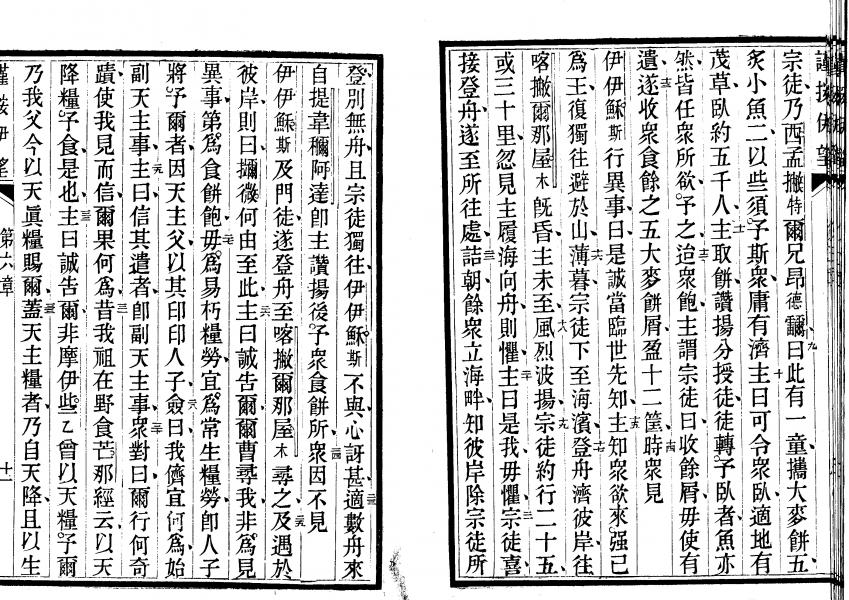 謹按伊望
宗徒乃西孟撇特爾兄昂德爾曰此有一童攜大麥餅五
炙小魚二以些須予斯衆庸有濟主曰可令衆臥適地有
茂草臥約五千人主取餅讚揚分授徒徒轉予臥者魚亦
然皆任衆所欲予之迨衆飽主謂宗徒曰收餘屑毋使有
遺遂收衆食餘之五大麥餅屑盈十二筐時衆見
伊伊穌斯行異事曰是誠當臨世先知主知衆欲來强已
爲王復獨往避於山薄暮宗徒下至海濱登舟濟彼岸往
喀撇爾那屋木旣昏主未至風烈波揚宗徒約行二十五
或三十里忽見主履海向舟則懼主曰是我毋懼宗徒喜
接登舟遂至所往處詰朝餘衆立海畔知彼岸除宗徒所
登別無舟且宗徒獨往伊伊穌斯不與心訝甚適數舟來
自提韋穪阿達卽主讚揚後予衆食餅所衆因不見
伊伊穌斯及門徒遂登舟至喀撇爾那屋木尋之及遇於
彼岸則曰㩶微何由至此主曰誠告爾爾曹尋我非爲見
異事第爲食餅飽毋爲易朽糧勞宜爲常生糧勞卽人子
將予爾者因天主父以其印印人子僉曰我儕宜何爲始
副天主事主曰信其遣者卽副天主事衆對曰爾行何奇
蹟使我見而信爾果何爲昔我祖在野食芒那經云以天
降糧予食是也主曰誠告爾非摩伊些乙曾以天糧予爾
乃我父今以天眞糧賜爾蓋天主糧者乃自天降且以生
謹按伊望
第六章
十一